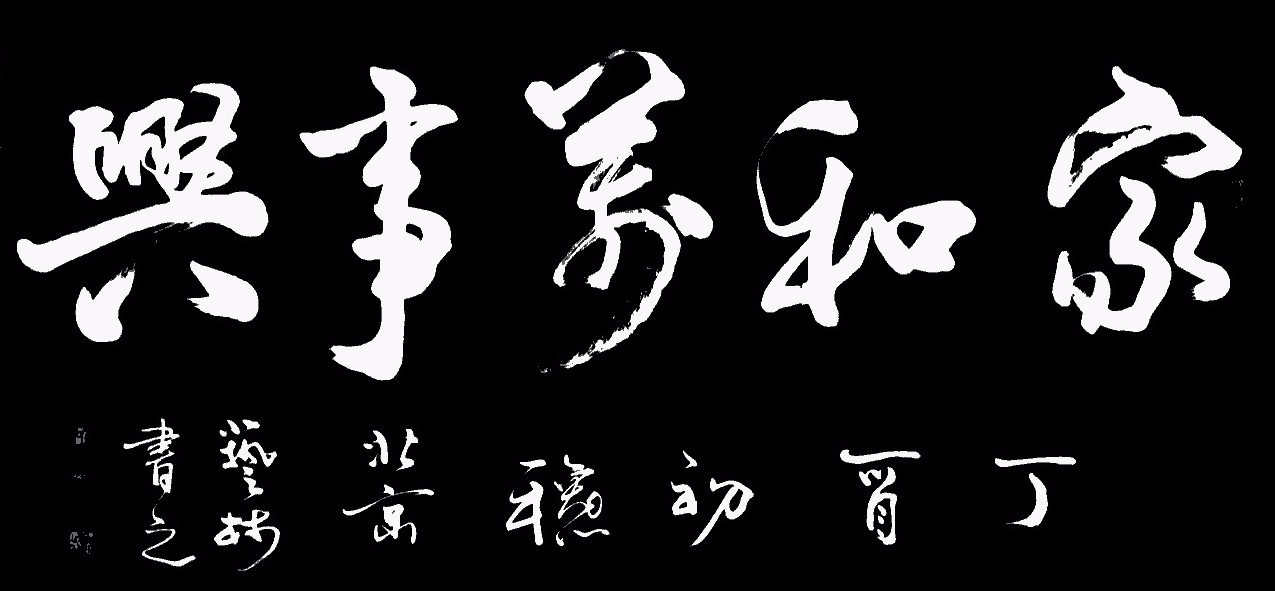 家和萬事興
丁酉初北京藝林書之